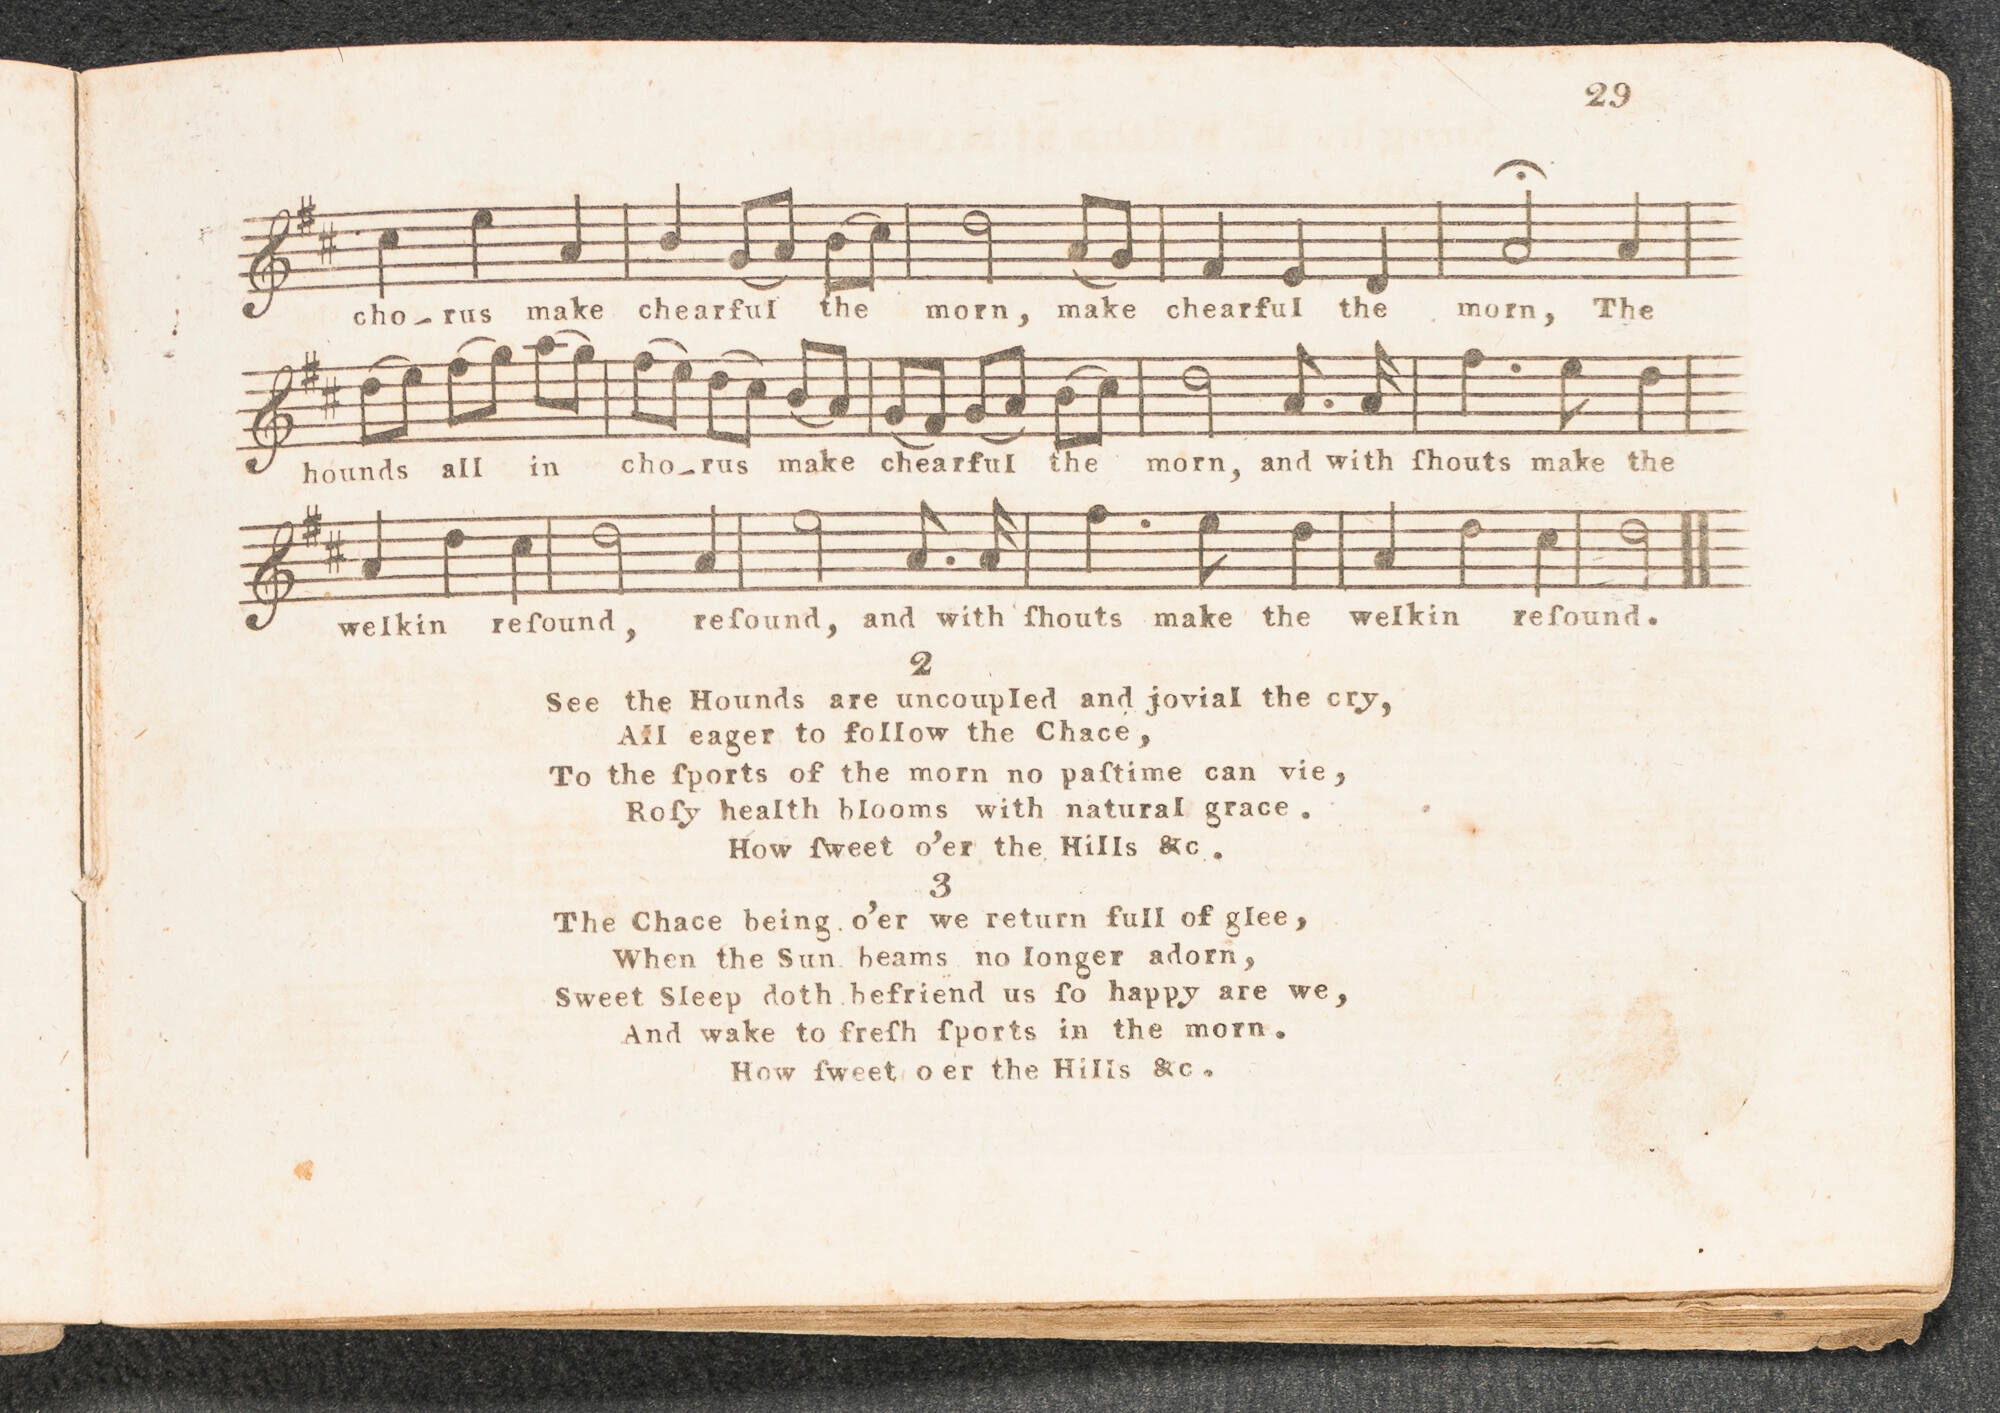 29
cho-rus make chearful the morn, make chearful the morn, The
hounds all in cho-rus make chearful the morn, and with ſhouts make the
welkin reſound, reſound, and with ſhouts make the welkin reſound.
2
See the Hounds are uncoupled and jovial the cry,
All eager to follow the Chace,
To the ſports of the morn no paſtime can vie,
Roſy health blooms with natural grace.
How ſweet o'er the Hills &c.
3
The Chace being o'er we return full of glee,
When the Sun beams no longer adorn,
Sweet Sleep doth befriend us ſo happy are we,
And wake to freſh ſports in the morn.
How ſweet o er the Hills &c.